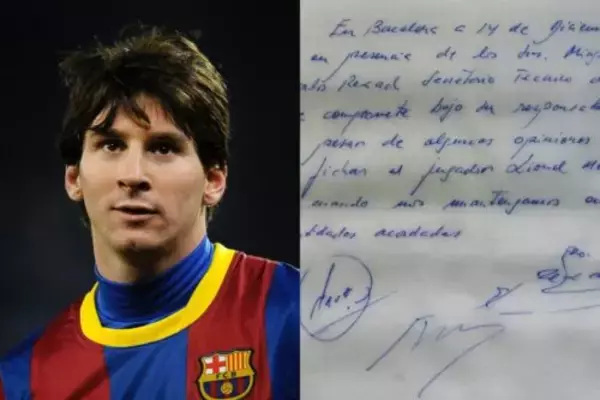 En Barcelona a 14 de Diciem
en presencia de los Srs. Ming
Rexach Secretario Tecnico
compromete bajo su responsab
pesar de algunas opiniones
fichar al jugador Lionel Me
cuando nos mantengamos
tidades acordadas
FCB